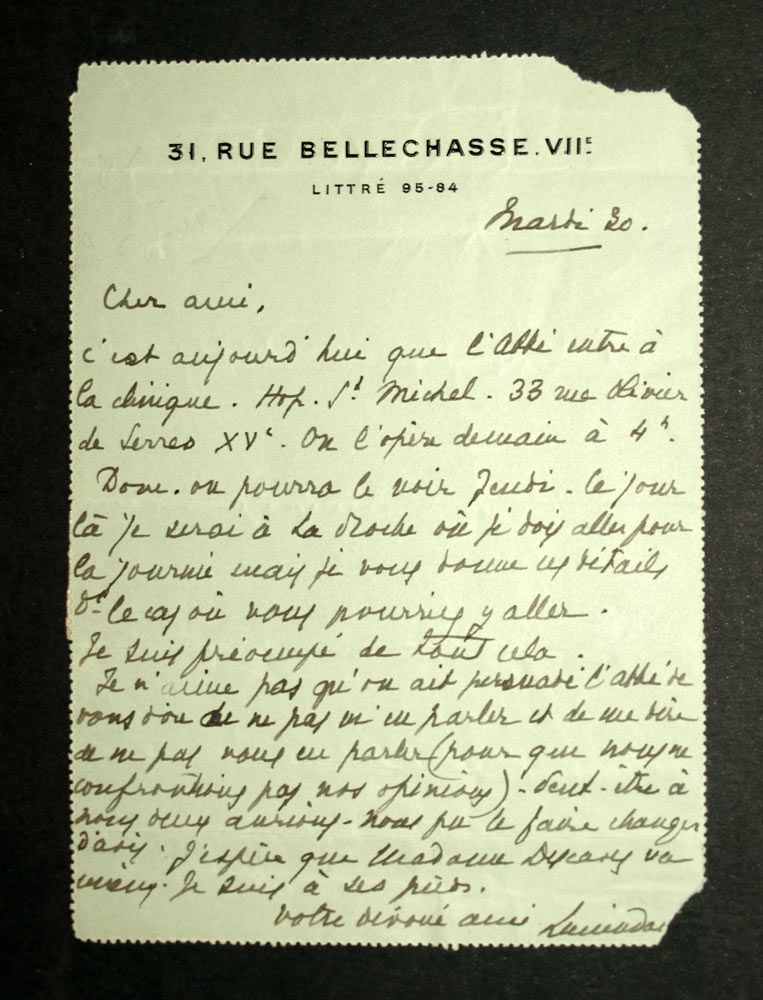 31, RUE BELLECHASSE. VIIE
LITTRÉ 95-84
Mardi 30.
Cher ami,
c'est aujourd'hui que l'Abbé entre à
la clinique. Hop. St Michel. 33 rue Olivier
de Serres XVe. On l'opère demain à 4h.
Donc. on pourra le voir Jeudi. Ce jour
là je serai à La Roche où je dois aller pour
la journée mais je vous donne ces détails
ds le cas où vous pourriez y aller.
Je suis préoccupé de tout cela.
Je n'aime pas qu'on ait persuadé l'abbé de
vous dire de ne pas m'en parler et de me dire
de ne pas vous en parler (pour que nous ne
confrontions pas nos opinions). Peut-être à
nous deux aurions-nous pu le faire changer
d'avis. J'espère que Madame va
mieux. Je suis à ses pieds.
Votre dévoué ami